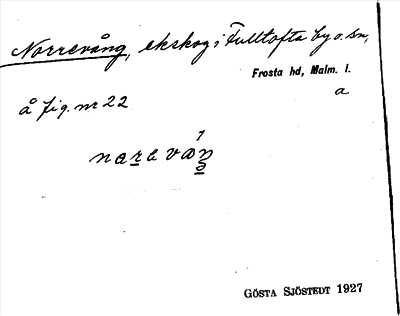 Norrevång, ekskog i Fulltofta by o. sn,
Frosta hd, Malm. l.
a
å fig. nr 22
GÖSTA SJÖSTEDT 1927